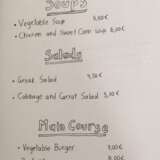 Soups
• Vegetable Soup 5,50€
• Chicken and Sweet Corn Soup 6,50€
Salads
• Greek Salad 4,50€
• Cabbage and Carrot Salad 5,10€
Main Course
• Vegetable Burger 9,00€